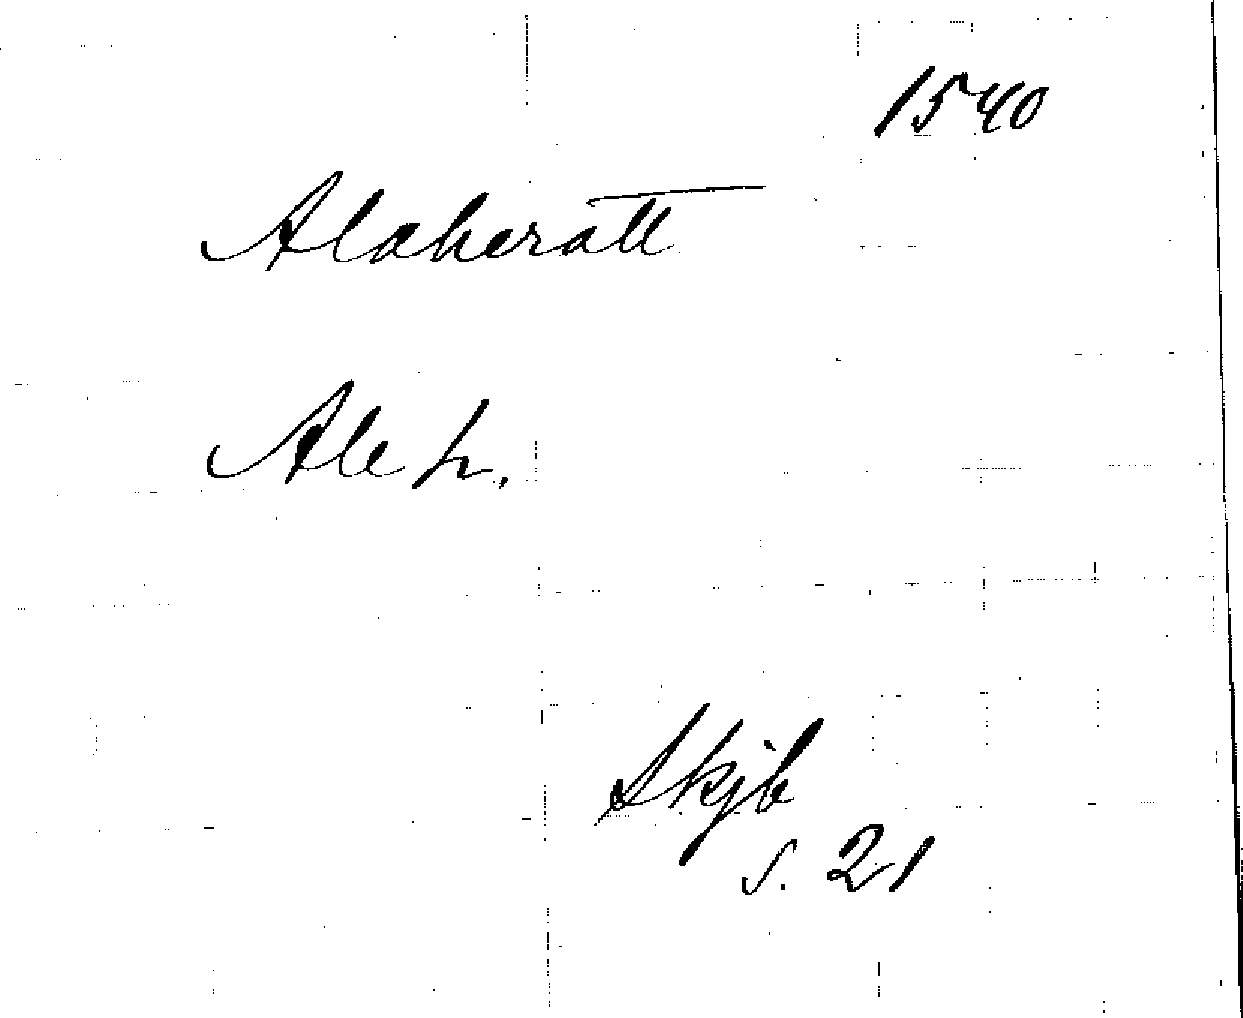 1540
Alaheratt
Ale h.
Skjb
s. 21